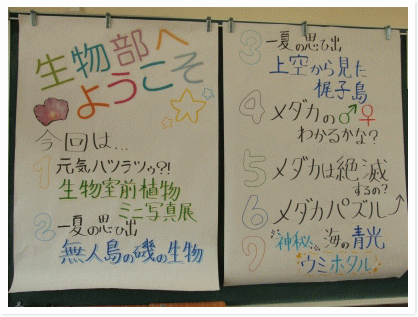 生物部へ
ようこそ
今回は…
1 元気ハツラツゥ?!
生物室前植物
ミニ写真展
2 一夏の思ひ出
無人島の磯の生物
3 一夏の思ひ出
上空から見た
梶子島
4 メダカの♂♀
わかるかな?
5 メダカは絶滅
するの?
6 メダカパズル
7 神秘 海の青光
ウミホタル